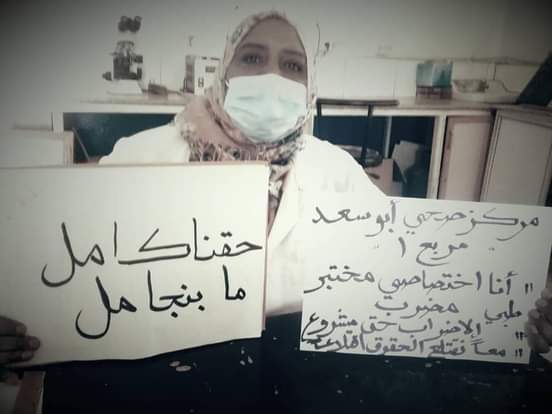 حقنا كامل
ما بنجامل
مركز صحي أبو سعد
مربع ١
"أنا اختصاصي مختبر
طبي مضرب
الإضراب حق مشروع
معاً نقتلع الحقوق